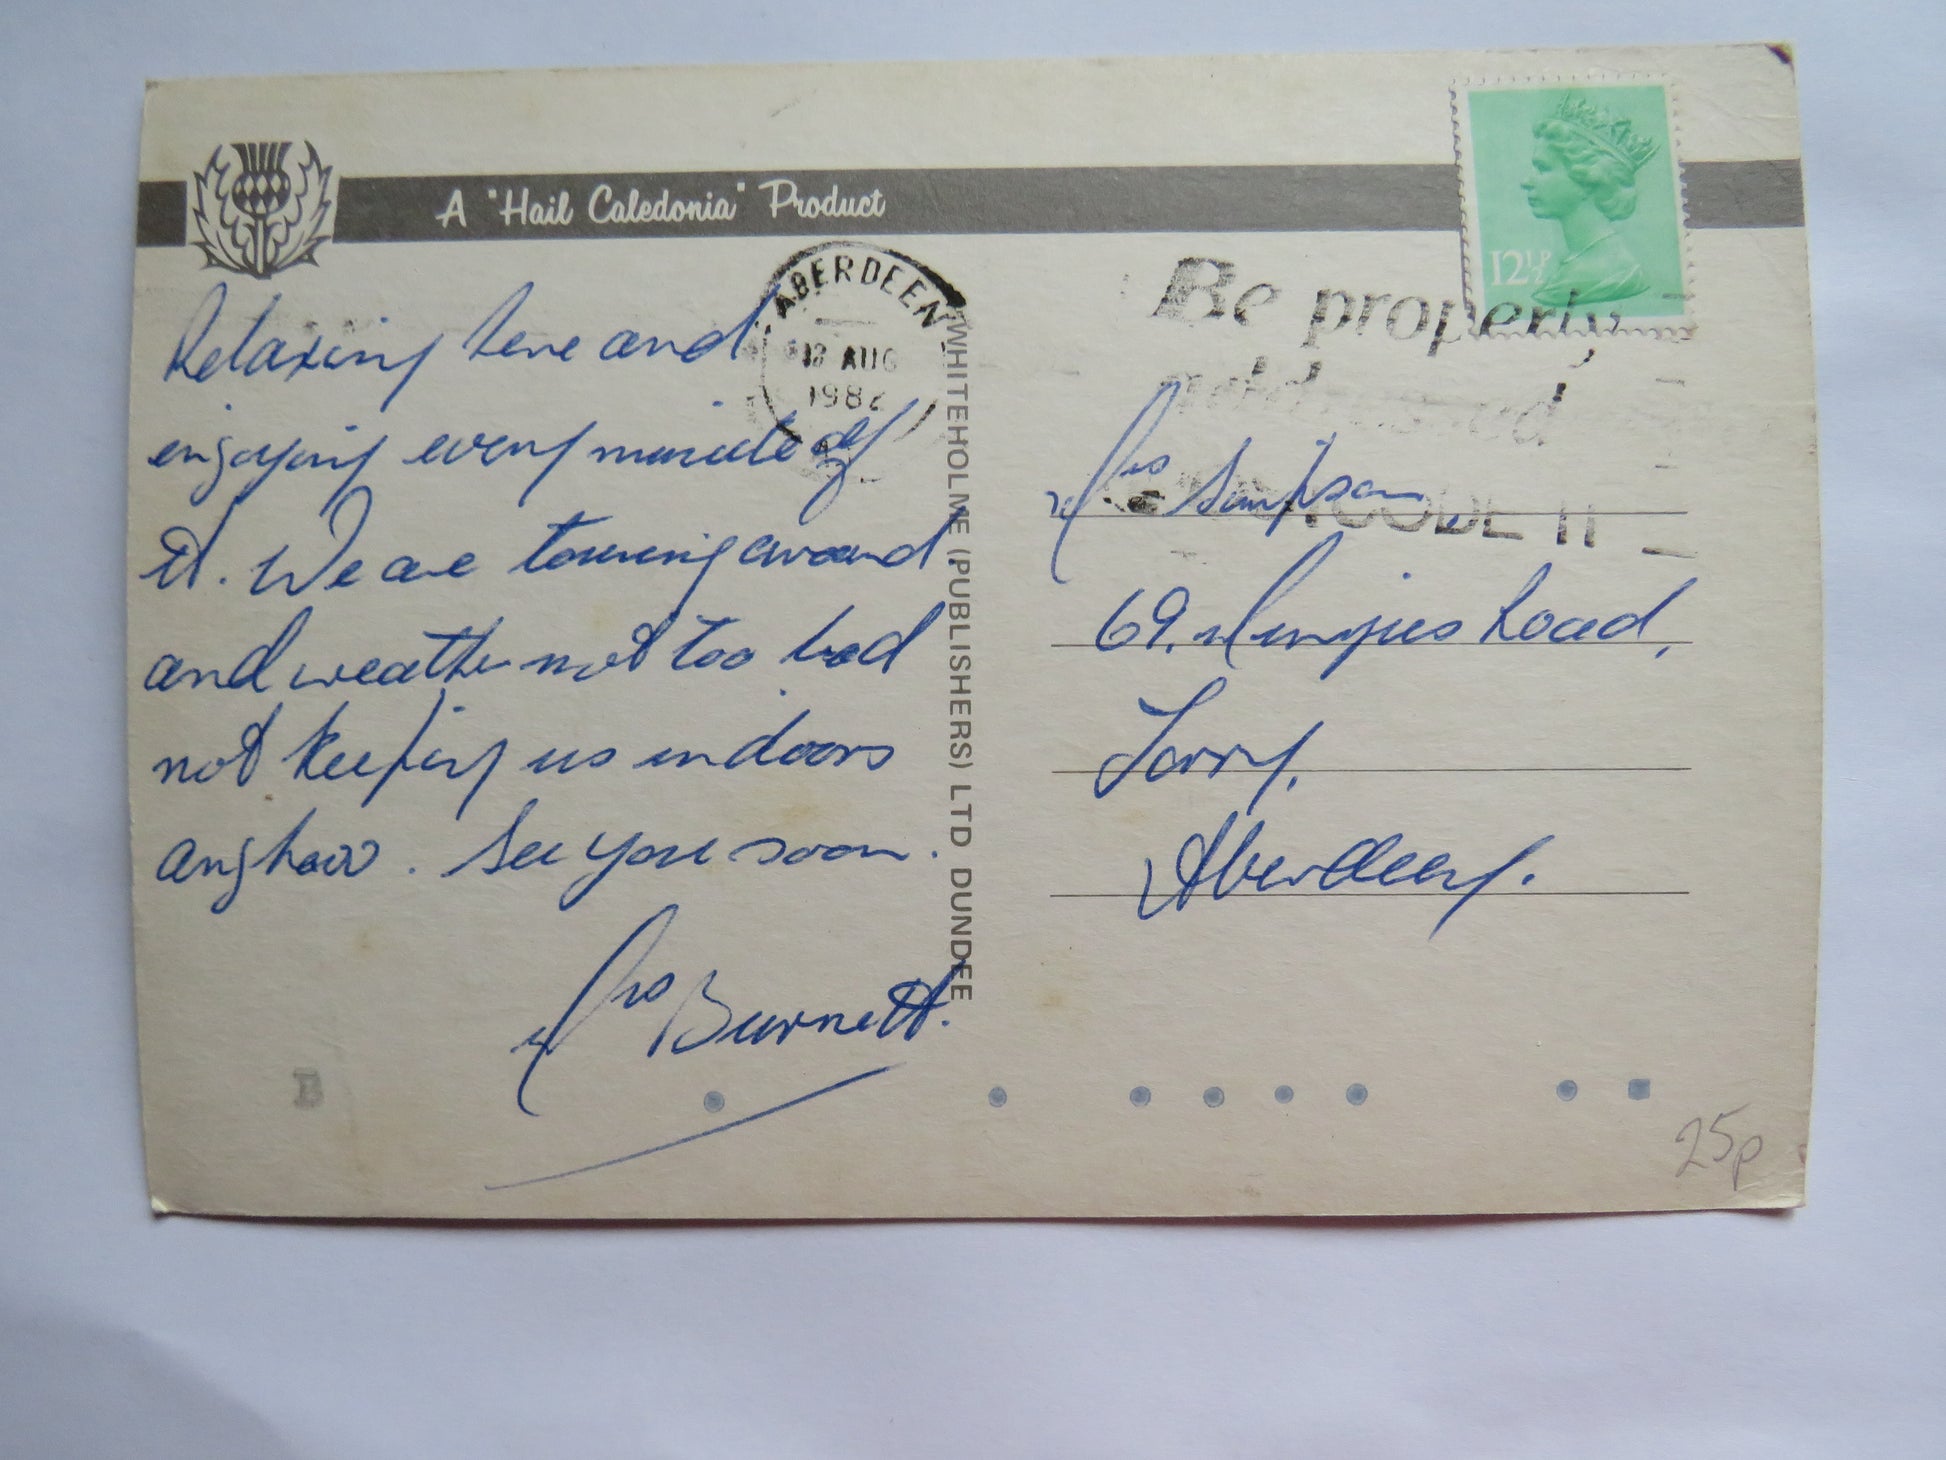 A "Hail Caledonia" Product
12½P
ABERDEEN
AUG
1982
Be properly
addressed
POSTCODE IT
Relaxing here and
enjoying every minute of
it. We are touring around
and weather not too bad
not keeping us indoors
anyhow. See you soon.
Mrs Burnett.
WHITEHOLME (PUBLISHERS) LTD DUNDEE
Mrs Simpson,
69, Menzies Road,
Torry,
Aberdeen.
B
25p